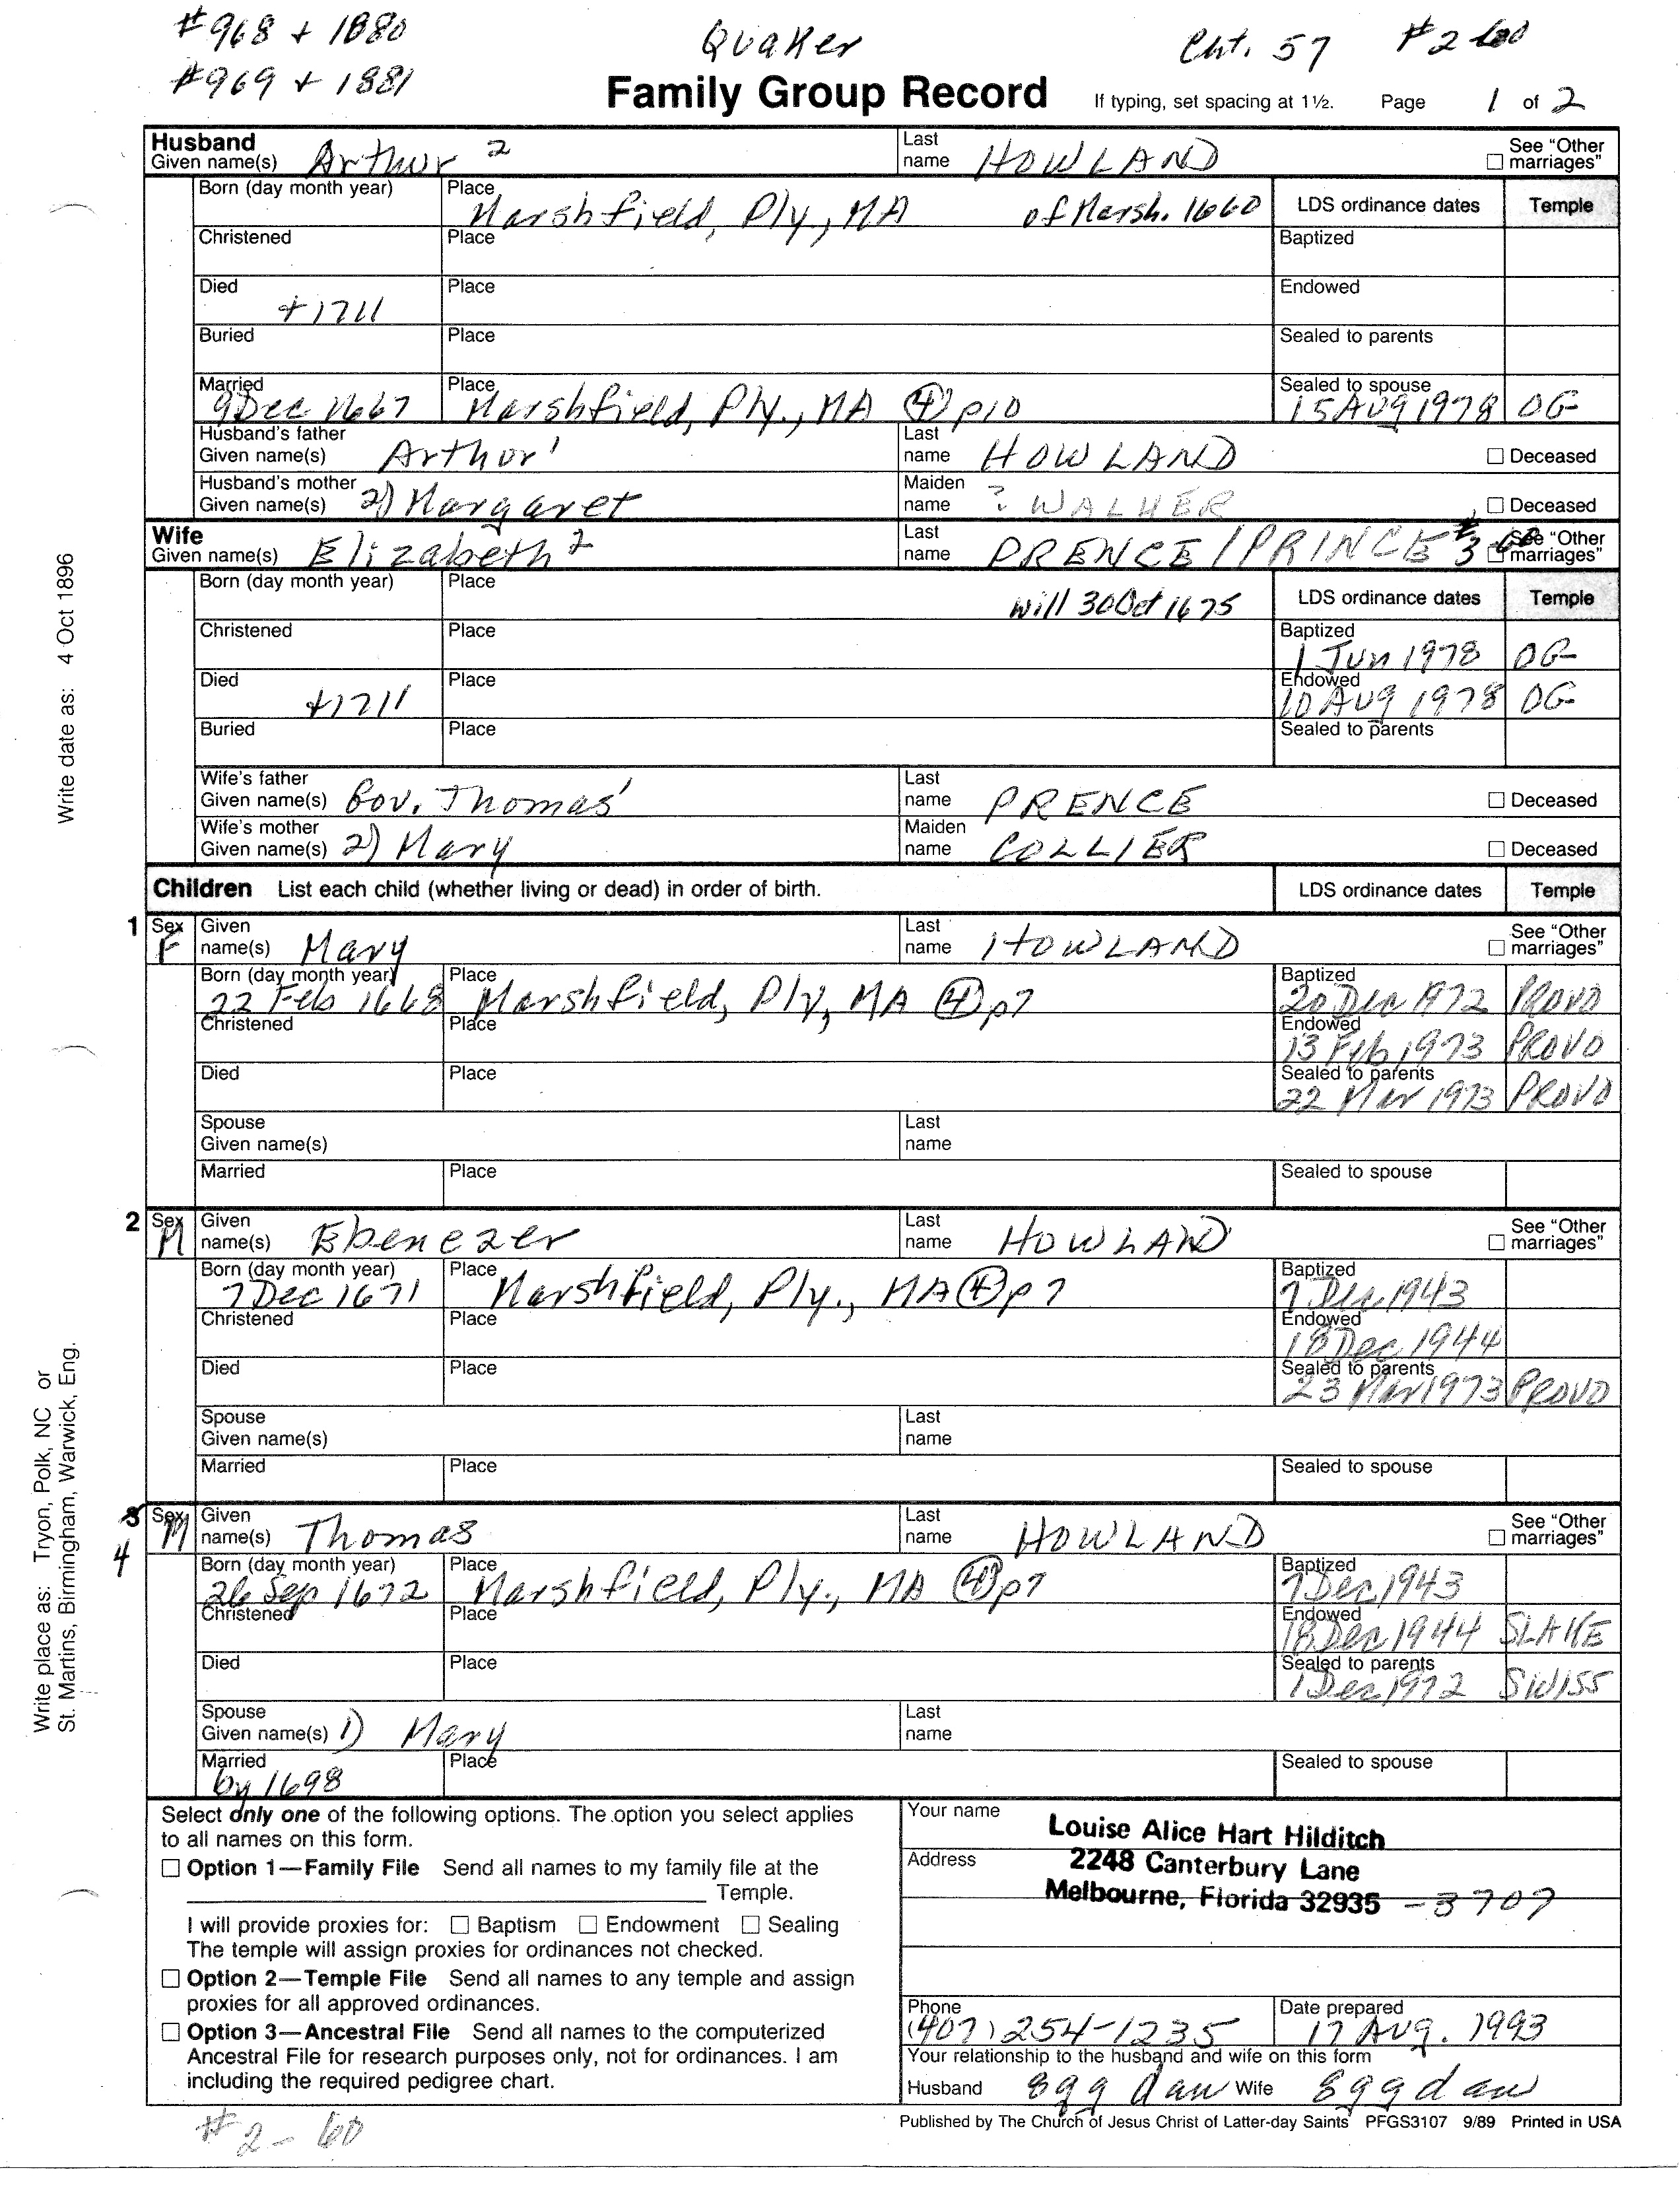 #968 + 1880
#969 + 1881
Quaker
Cht. 57 #2
Family Group Record If typing, set spacing at 1½. Page 1 of 2
Husband
Given name(s) Arthur 2 Last name HOWLAND See "Other marriages"
Born (day month year) Place Marshfield, Ply., MA of Marsh. 1660 LDS ordinance dates Temple
Christened Place Baptized
Died +1711 Place Endowed
Buried Place Sealed to parents
Married 9 Dec 1667 Place Marshfield, Ply., MA (4) p10 Sealed to spouse 15 AUG 1978 OG
Husband's father Given name(s) Arthur 1 Last name HOWLAND Deceased
Husband's mother Given name(s) 2) Margaret Maiden name ? WALKER Deceased
Wife
Given name(s) Elizabeth 2 Last name PRENCE / PRINCE #3 See "Other marriages"
Born (day month year) Place will 30 Oct 1675 LDS ordinance dates Temple
Christened Place Baptized 1 Jun 1978 OG
Died +1711 Place Endowed 10 AUG 1978 OG
Buried Place Sealed to parents
Wife's father Given name(s) Gov. Thomas 1 Last name PRENCE Deceased
Wife's mother Given name(s) 2) Mary Maiden name COLLIER Deceased
Children List each child (whether living or dead) in order of birth. LDS ordinance dates Temple
1 Sex F Given name(s) Mary Last name HOWLAND See "Other marriages"
Born (day month year) 22 Feb 1668 Place Marshfield, Ply, MA (4) p7 Baptized 20 Dec 1972 PROVO
Christened Place Endowed 13 Feb 1973 PROVO
Died Place Sealed to parents 22 Mar 1973 PROVO
Spouse Given name(s) Last name
Married Place Sealed to spouse
2 Sex M Given name(s) Ebenezer Last name HOWLAND See "Other marriages"
Born (day month year) 7 Dec 1671 Place Marshfield, Ply., MA (4) p7 Baptized 7 Dec 1943
Christened Place Endowed 18 Dec 1944
Died Place Sealed to parents 23 Mar 1973 PROVO
Spouse Given name(s) Last name
Married Place Sealed to spouse
3 4 Sex M Given name(s) Thomas Last name HOWLAND See "Other marriages"
Born (day month year) 26 Sep 1672 Place Marshfield, Ply., MA (4) p7 Baptized 7 Dec 1943
Christened Place Endowed 18 Dec 1944 SLAKE
Died Place Sealed to parents 1 Dec 1972 SWISS
Spouse Given name(s) 1) Mary Last name
Married by 1698 Place Sealed to spouse
Select only one of the following options. The option you select applies
to all names on this form.
Option 1—Family File Send all names to my family file at the
Temple.
I will provide proxies for: Baptism Endowment Sealing
The temple will assign proxies for ordinances not checked.
Option 2—Temple File Send all names to any temple and assign
proxies for all approved ordinances.
Option 3—Ancestral File Send all names to the computerized
Ancestral File for research purposes only, not for ordinances. I am
including the required pedigree chart.
Your name Louise Alice Hart Hilditch
Address 2248 Canterbury Lane
Melbourne, Florida 32935 -3707
Phone (407) 254-1235 Date prepared 17 AUG. 1993
Your relationship to the husband and wife on this form
Husband 8gg dau Wife 8gg dau
Published by The Church of Jesus Christ of Latter-day Saints PFGS3107 9/89 Printed in USA
#2-60
Write date as: 4 Oct 1896
Write place as: Tryon, Polk, NC or
St. Martins, Birmingham, Warwick, Eng.